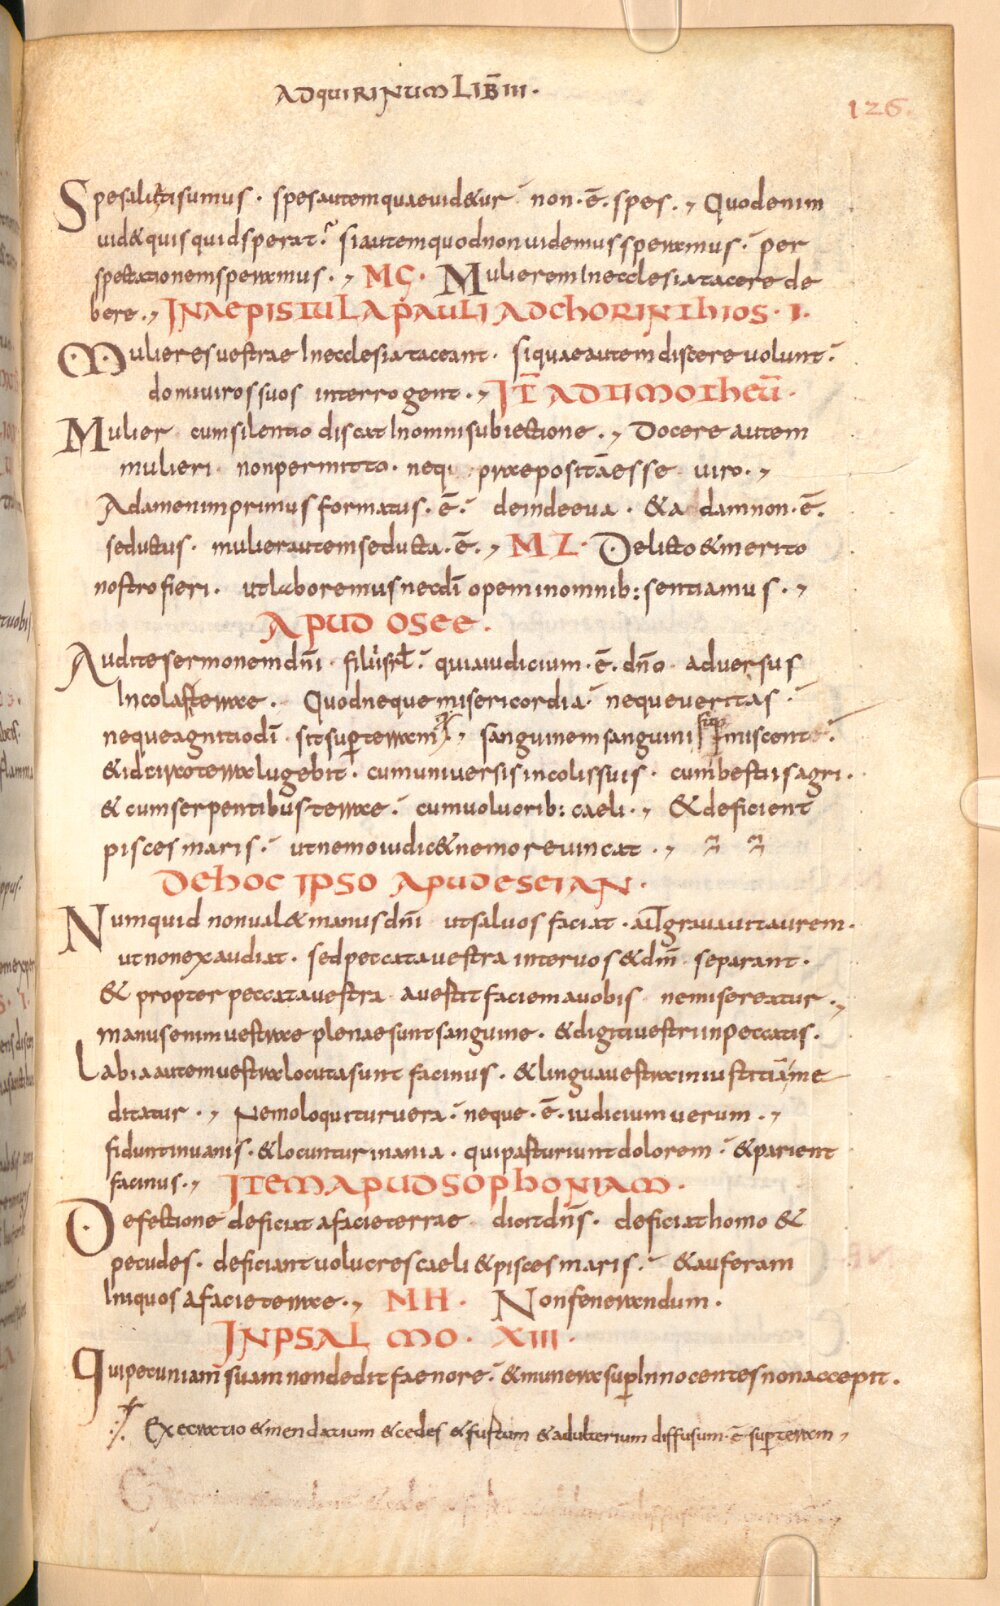 ADQUIRINUM LIB̅ III·
126·
Spe saliati sumus · spes autem quae videtur non · ē · spes ·, Quod enim
videt quis quid sperat? si autem quod non videmus speramus · per
spectationem speramus ·, MC · Mulierem In ecclesia tacere de
bere ·, IN AEPISTULA PAULI AD CHORINTHIOS · I ·
Mulieres uestrae In ecclesia taceant · si quae autem discere uolunt ·
domi uiros suos interrogent ·, IT̅ AD TIMOTHEŪ ·
Mulier cum silentio discat In omni subiectione ·, Docere autem
mulieri non permitto · neq; praepositā esse uiro ·,
Adam enim primus formatus · ē · deinde eua · & adam non · ē ·
seductus · mulier autem seducta · ē ·, ML · Delicto & merito
nostro fieri · ut laboremus nec dī opem in omnib: sentiamus ·,
APUD OSEE ·
Audite sermonem dn̄i · filii isrl̄ · quia iudicium · ē · dn̄o · aduersus
Incolas terrae · Quod neque misericordia neque ueritas ·
neque agnitio dī · sit sup̄ terram ·, sanguinem sanguini sup miscent ·
& idcirco terra lugebit · cum uniuersis incolis suis · cum bestiis agri ·
& cum serpentibus terrae · cum uolucrib: caeli ·, & deficient
pisces maris · ut nemo iudic& nemo reuincat ·,
DE HOC IPSO APUD ESEIAN ·
Numquid non ual& manus dn̄i ut saluos faciat · aut grauauit aurem ·
ut non exaudiat · sed peccata uestra inter uos & dm̄ separant ·
& propter peccata uestra auertit faciem a uobis ne misereatur ·,
manus enim uestrae plenae sunt sanguine · & digiti uestri in peccatis ·
Labia autem uestra locuta sunt facinus · & lingua uestra iniustitiā me
ditatur ·, Nemo loquitur uera · neque · ē · iudicium uerum ·,
fidunt in uanis · & locuntur inania · qui parturiunt dolorem · & parient
facinus ·, ITEM APUD SOPHONIAM ·
Defectione deficiat a facie terrae dicit dn̄s · deficiat homo &
pecudes · deficiant uolucres caeli & pisces maris · & auferam
Iniquos a facie terrae ·, MH · Non fenerandum ·
IN PSALMO · XIII ·
Qui pecuniam suam non dedit faenore · & munera sup̄ Innocentes non accepit ·
Execratio & mendatium & cedes & furtum & adulterium diffusum · ē sup̄ terram ,